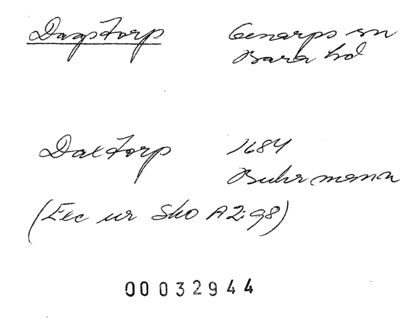 Dagstorp Genarps sn
Bara hd
Daxtorp 1684
Buhrmann
(Exc ur Sko A2:98)
00032944